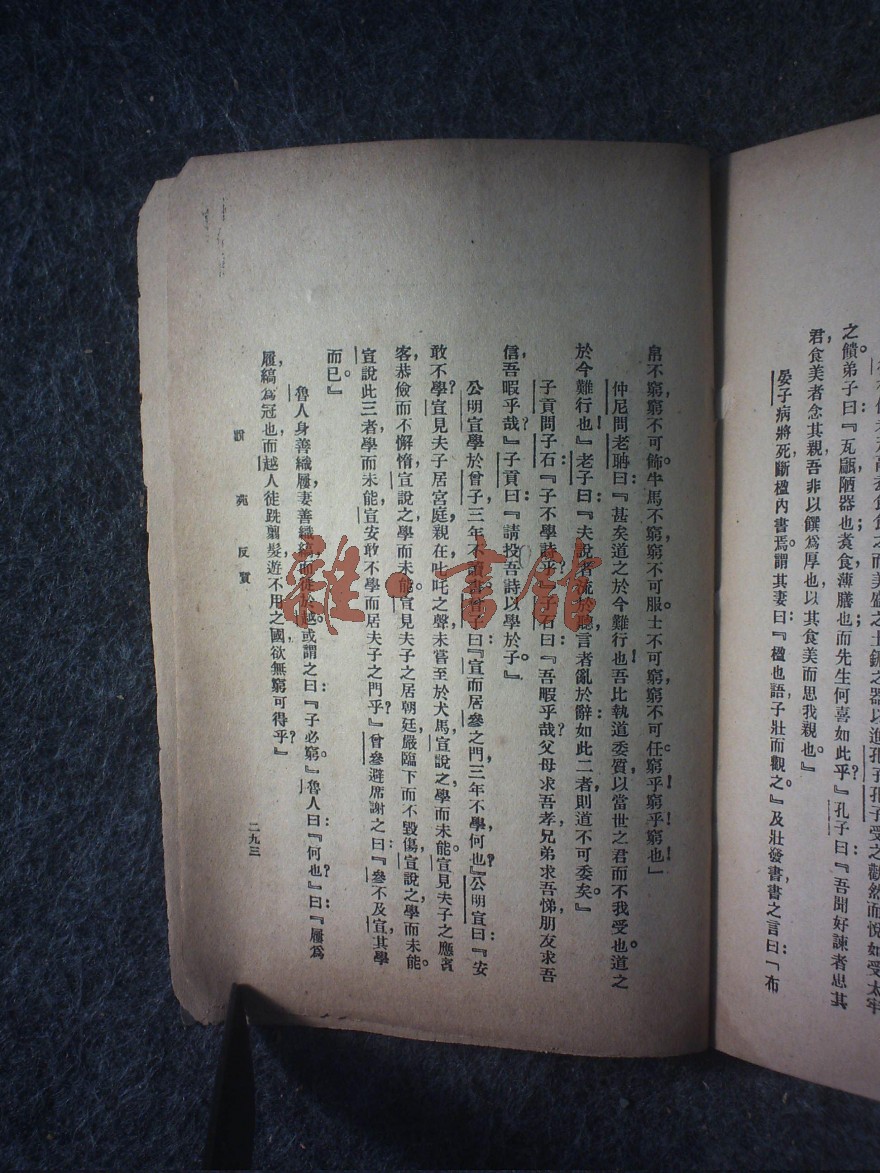 之饋。弟子曰：『瓦甂陋器也；煑食薄膳也；而先生何喜如此乎？』孔子曰：『吾聞好諫者思其
君食美者念其親，吾非以饌爲厚也，以其食美而思我親也。』
晏子病將死，斷楹內書焉。謂其妻曰：『楹也語子壯而觀之。』及壯發書，書之言曰：「布
帛不窮，窮不可飾。牛馬不窮，窮不可服。士不可窮，窮不可任。窮乎！窮乎！窮也！」
仲尼問老聃曰：『甚矣道之於今難行也！吾比執道委質以當世之君而不我受也。道之
於今難行也！』老子曰：『夫說者流於聽，言者亂於辭，如此二者，則道不可委矣。』
子貢問子石：『子不學詩乎？』子石曰：『吾暇乎哉？父母求吾孝，兄弟求吾悌，朋友求吾
信，吾暇乎哉』子貢曰：『請投吾詩以學於子。』
公明宣學於曾子，三年不讀書。曾子曰：『宣而居參之門，三年不學，何也？』公明宣曰：『安
敢不學？宣見夫子居宮庭，親在，叱叱之聲未嘗至於犬馬，宣說之，學而未能。宣見夫子之應賓
客，恭儉而不懈惰，宣說之，學而未能。宣見夫子之居朝廷，嚴臨下而不毀傷，宣說之，學而未能。
宣說此三者學而未能，宣安敢不學而居夫子之門乎？』曾參避席謝之曰：『參不及宣，其學
而已。』
魯人身善織屨，妻善織縞，而徙於越。或謂之曰：『子必窮。』魯人曰：『何也？』曰：『屨爲
履，縞爲冠也，而越人徒跣翦髮，遊不用之國，欲無窮可得乎？』
說苑 反質
二九三
雜·書館